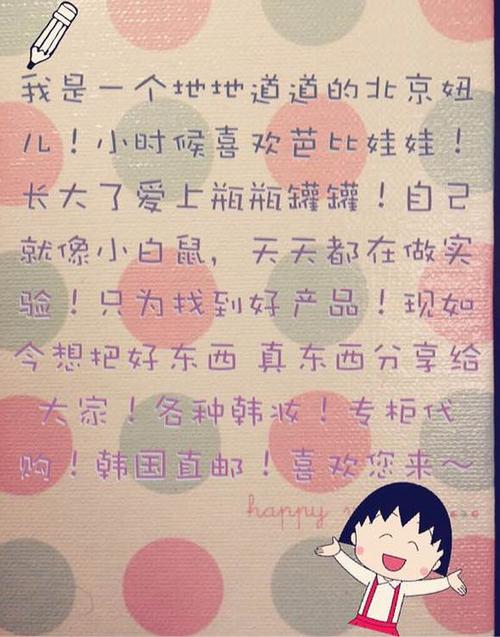 我是一个地地道道的北京妞
儿！小时候喜欢芭比娃娃！
长大了爱上瓶瓶罐罐！自己
就像小白鼠，天天都在做实
验！只为找到好产品！现如
今想把好东西 真东西分享给
大家！各种韩妆！专柜代
购！韩国直邮！喜欢您来～
happy